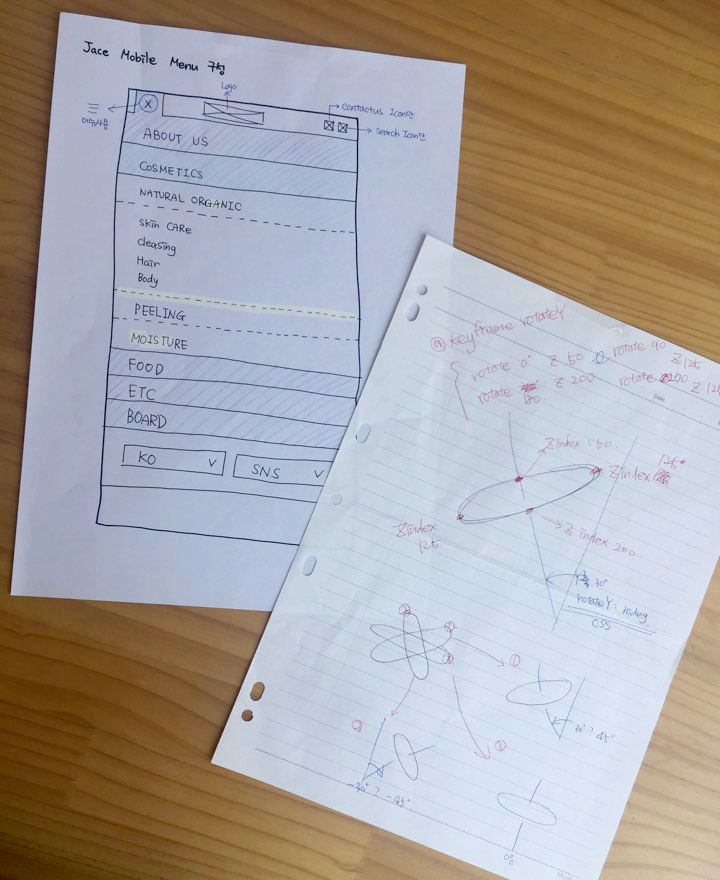 Jace Mobile Menu 구성
Logo
X
Contactus Icon만
Search Icon만
ABOUT US
COSMETICS
NATURAL ORGANIC
skin CARe
cleasing
Hair
Body
PEELING
MOISTURE
FOOD
ETC
BOARD
KO
SNS
@ keyframe rotateY
rotate 0° Z 50 rotate 90 Z 125
rotate 180 Z 200 rotate
Date
Zindex : 50
125
Zindex
Zindex
125
Z index 200
Y축 30°
rotateY: 30deg
CSS
30° ? 45°
-30° ? -45°
0°